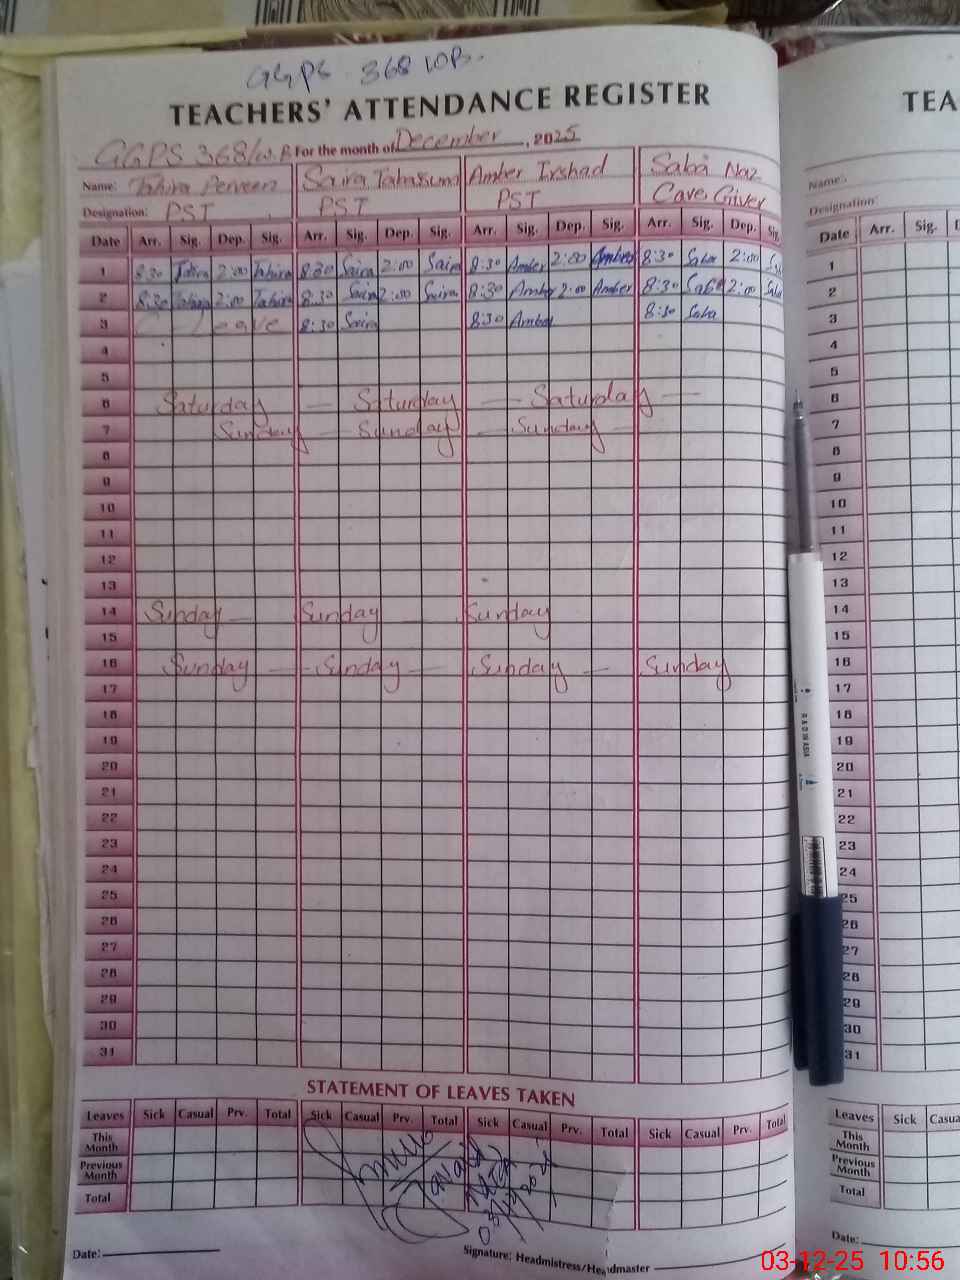 GGPS 368 WB.
TEACHERS' ATTENDANCE REGISTER
GGPS 368/W.B For the month of December, 2025
Name: Tahira Perveen Saira Tabasum Amber Irshad Saba Naz
Designation: PST PST PST Care Giver
Date Arr. Sig. Dep. Sig. Arr. Sig. Dep. Sig. Arr. Sig. Dep. Sig. Arr. Sig. Dep. Sig.
1 8:30 Tahira 2:00 Tahira 8:30 Saira 2:00 Saira 8:30 Amber 2:00 Amber 8:30 Saba 2:00
2 8:30 Tahira 2:00 Tahira 8:30 Saira 2:00 Saira 8:30 Amber 2:00 Amber 8:30 Saba 2:00 Saba
3 Leave 8:30 Saira 8:30 Amber 8:30 Saba
4
5
6 Saturday — Saturday — Saturday —
7 Sunday — Sunday — Sunday —
8
9
10
11
12
13
14 Sunday — Sunday — Sunday
15
16 Sunday — Sunday — Sunday — Sunday
17
18
19
20
21
22
23
24
25
26
27
28
29
30
31
STATEMENT OF LEAVES TAKEN
Leaves Sick Casual Prv. Total Sick Casual Prv. Total Sick Casual Prv. Total Sick Casual Prv. Total
This
Month
Previous
Month
Total
Date:
Signature: Headmistress/Headmaster
TEA
Name:
Designation:
Date Arr. Sig.
1
2
3
4
5
6
7
8
9
10
11
12
13
14
15
16
17
18
19
20
21
22
23
24
25
26
27
28
29
30
31
Leaves Sick Casua
This
Month
Previous
Month
Total
Date:
03-12-25 10:56